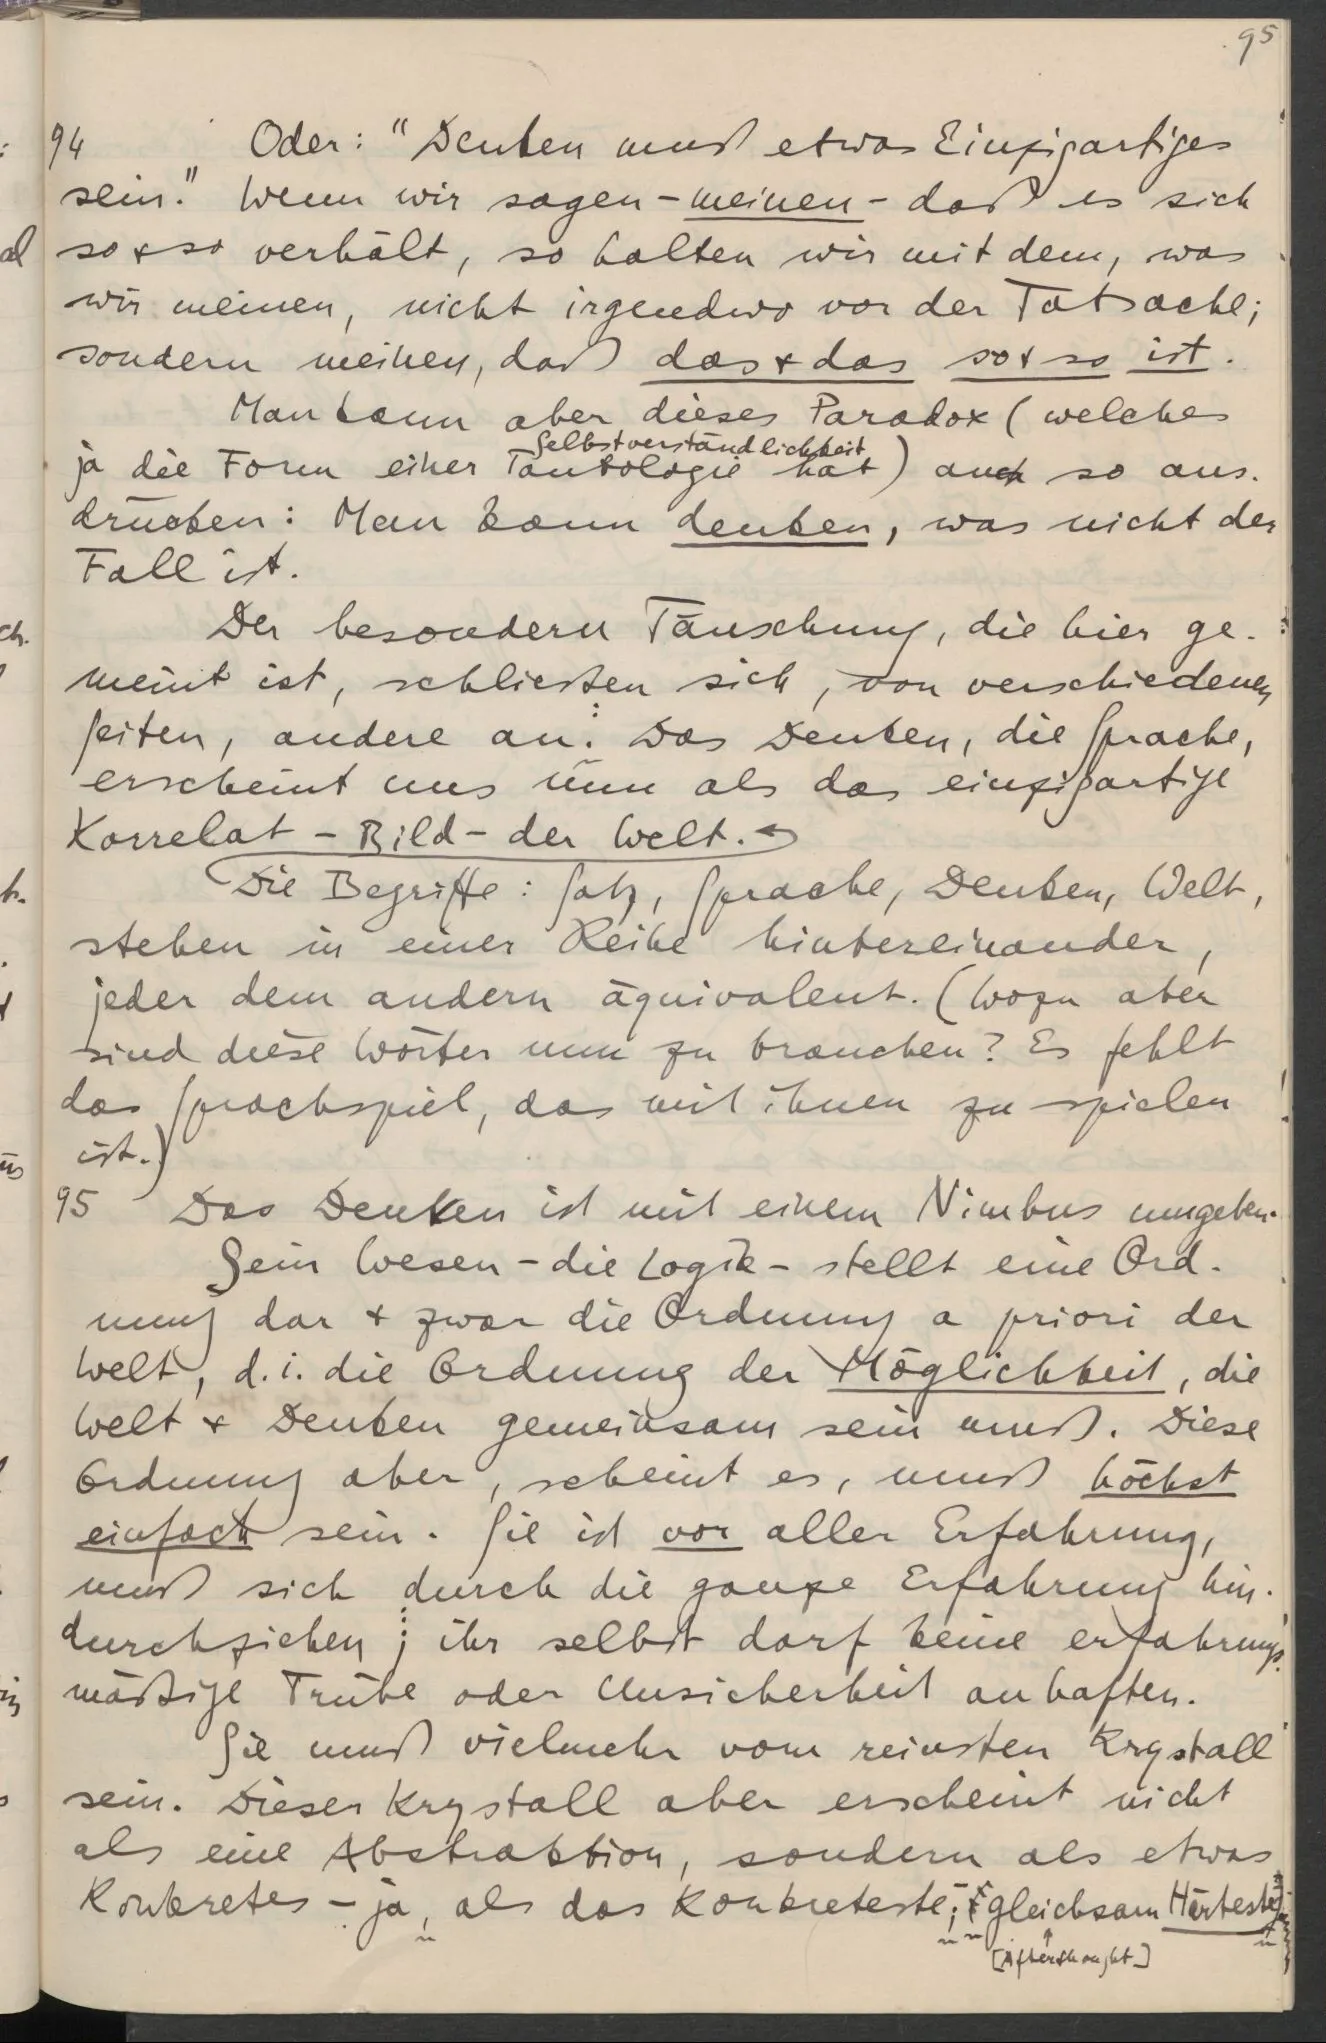 95
94 Oder: "Denken muß etwas Einzigartiges
sein." Wenn wir sagen – meinen – daß es sich
so & so verhält, so halten wir mit dem, was
wir meinen, nicht irgendwo vor der Tatsache;
sondern meinen, daß das & das so & so ist.
Man kann aber dieses Paradox (welches
Selbstverständlichkeit
ja die Form einer Tautologie hat) auch so aus-
drücken: Man kann denken, was nicht der
Fall ist.
Der besondern Täuschung, die hier ge-
meint ist, schließen sich, von verschiedenen
Seiten, andere an: Das Denken, die Sprache,
erscheint uns nun als das einzigartige
Korrelat – Bild – der Welt.
Die Begriffe: Satz, Sprache, Denken, Welt,
stehen in einer Reihe hintereinander,
jeder dem andern äquivalent. (Wozu aber
sind diese Wörter nun zu brauchen? Es fehlt
das Sprachspiel, das mit ihnen zu spielen
ist.)
95 Das Denken ist mit einem Nimbus umgeben.
Sein Wesen – die Logik – stellt eine Ord-
nung dar & zwar die Ordnung a priori der
Welt, d.i. die Ordnung der Möglichkeit, die
Welt & Denken gemeinsam sein muß. Diese
Ordnung aber, scheint es, muß höchst
einfach sein. Sie ist vor aller Erfahrung,
muß sich durch die ganze Erfahrung hin-
durchziehen; ihr selbst darf keine erfahrungs-
mäßige Trübe oder Unsicherheit anhaften.
Sie muß vielmehr vom reinsten Krystall
sein. Dieser Krystall aber erscheint nicht
als eine Abstraktion, sondern als etwas
Konkretes – ja, als das Konkreteste, gleichsam Härteste
[Afterthought]